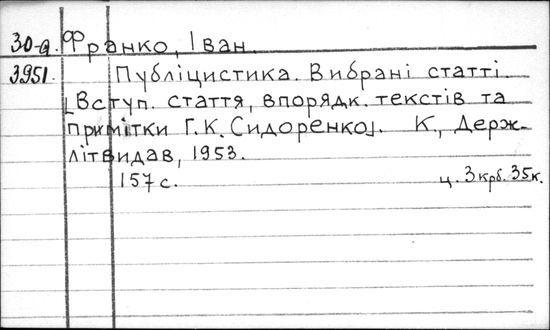 30-а. Франко, Іван.
3951. Публіцистика. Вибрані статті.
[Вступ. стаття, впорядк. текстів та
примітки Г.К. Сидоренко]. К., Держ-
літвидав, 1953.
157 с. ц. 3 крб. 35 к.